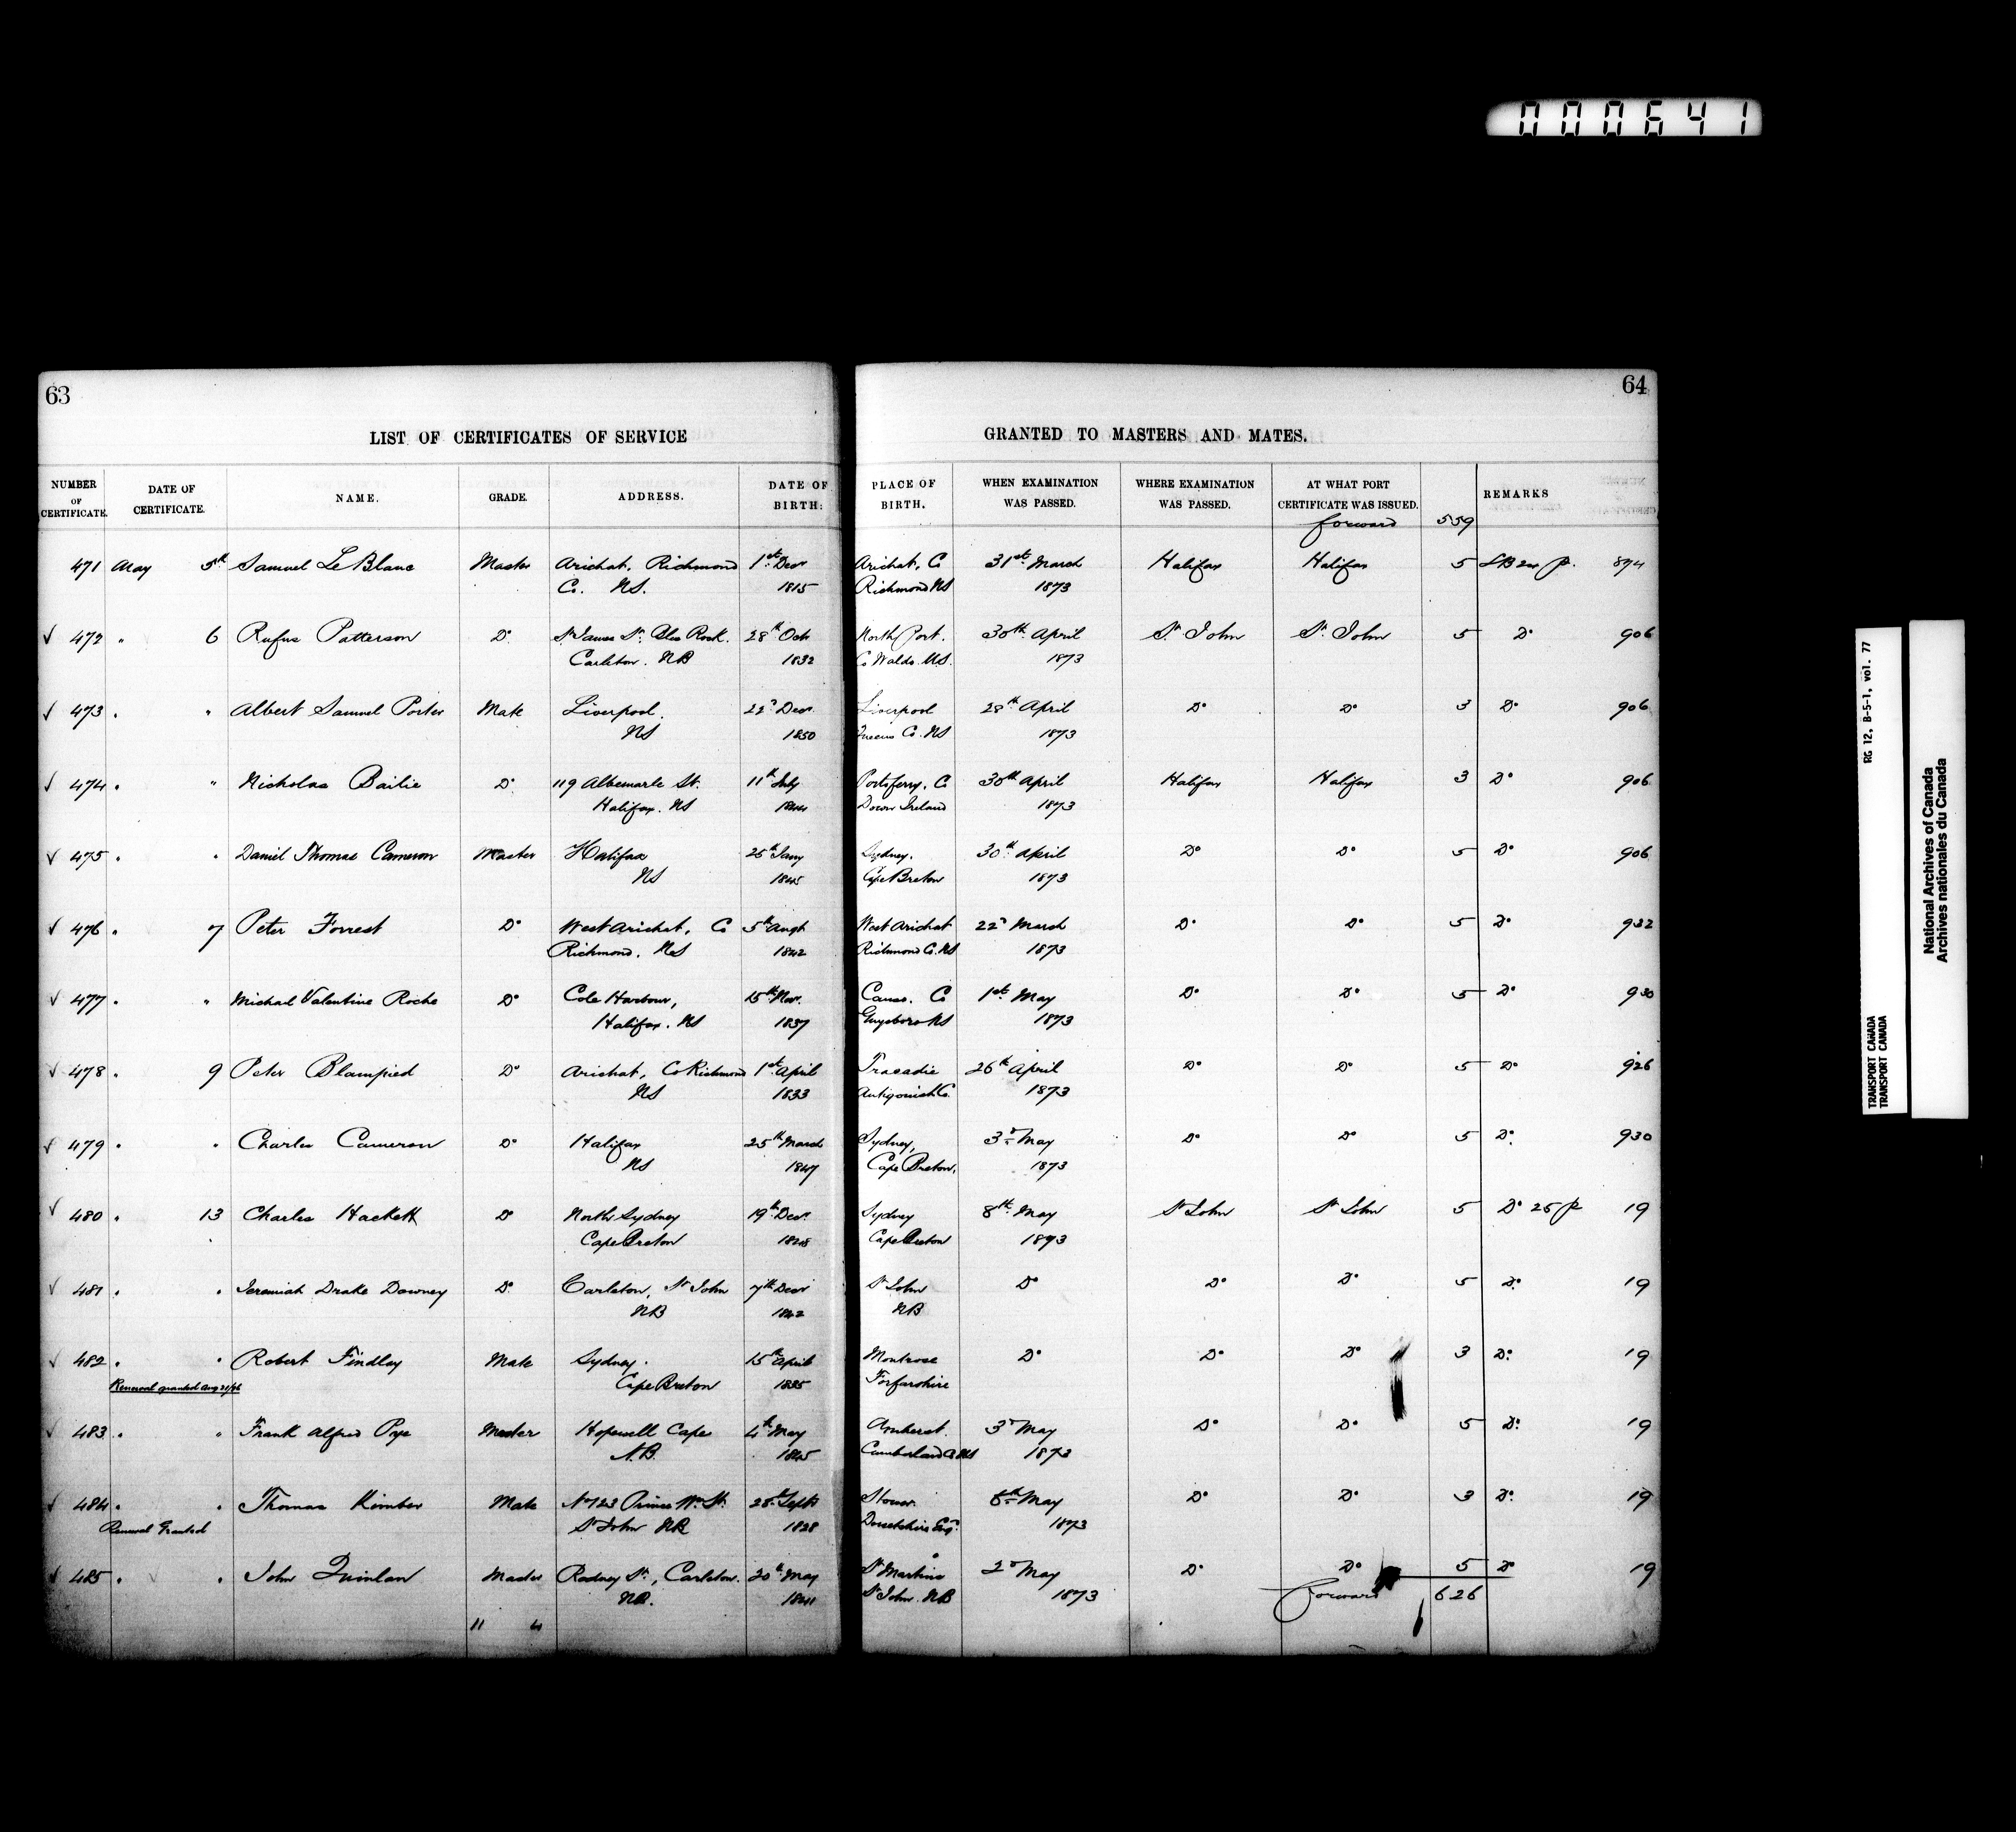 000641
63
64
LIST OF CERTIFICATES OF SERVICE GRANTED TO MASTERS AND MATES.
NUMBER OF CERTIFICATE. DATE OF CERTIFICATE. NAME. GRADE. ADDRESS. DATE OF BIRTH: PLACE OF BIRTH. WHEN EXAMINATION WAS PASSED. WHERE EXAMINATION WAS PASSED. AT WHAT PORT CERTIFICATE WAS ISSUED. REMARKS
forward 559
471 May 5th Samuel Le Blanc Master Arichat, Richmond 1st Decr Arichat, Co 31st March Halifax Halifax 5 874
Co. NS. 1815 Richmond NS 1873
✓ 472 " 6 Rufus Patterson Do St James St. Blue Rock. 28th Oct North Port. 30th April St John St. John 5 Do 906
Carleton. NB 1832 Co Waldo. U.S. 1873
✓ 473 " " Albert Samuel Porter Mate Liverpool. 22d Decr Liverpool 28th April Do Do 3 Do 906
NS 1850 Queens Co. NS 1873
✓ 474 " " Nicholas Bailie Do 119 Albemarle St. 11th July Portaferry, Co 30th April Halifax Halifax 3 Do 906
Halifax. NS 1844 Down Ireland 1873
✓ 475 " " Daniel Thomas Cameron Master Halifax 25th Jany Sydney. 30th April Do Do 5 Do 906
NS 1845 Cape Breton 1873
✓ 476 " 7 Peter Forrest Do West Arichat, Co 5th Augt West Arichat 22d March Do Do 5 Do 932
Richmond. NS 1842 Richmond Co. NS 1873
✓ 477 " " Michael Valentine Roche Do Cole Harbour, 15th Nov. Canso. Co 1st May Do Do 5 Do 930
Halifax. NS 1837 Guysboro NS 1873
✓ 478 " 9 Peter Blampied Do Arichat, Co Richmond 1st April Tracadie 26th April Do Do 5 Do 926
NS 1833 Antigonish Co. 1873
✓ 479 " " Charles Cameron Do Halifax 25th March Sydney, 3d May Do Do 5 Do 930
NS 1847 Cape Breton. 1873
✓ 480 " 13 Charles Hackett Do North Sydney 19th Decr Sydney 8th May St John St John 5 Do 25 p 19
Cape Breton Cape Breton 1873
✓ 481 " " Jeremiah Drake Downey Do Carleton, St John 7th Decr St John Do Do Do 5 Do 19
NB 1842 NB
✓ 482 " " Robert Findlay Mate Sydney. 15th April Montrose Do Do Do 3 Do 19
Renewal granted Cape Breton 1835 Forfarshire
✓ 483 " " Frank Alfred Pye Master Hopewell Cape 4th May Amherst. 3d May Do Do 5 Do 19
N.B. 1845 Cumberland Co NS 1873
✓ 484 " " Thomas Kimber Mate No 123 Prince Wm St. 28th Septr Stower. 8th May Do Do 3 Do 19
Renewal Granted St John NB 1828 Dorsetshire Eng. 1873
✓ 485 " " John Quinlan Master Rodney St, Carleton. 20th May St Martins 2d May Do Do 5 Do 19
NB. 1841 St John NB 1873 forward 626
11 4
RG 12, B-5-1, vol. 77
TRANSPORT CANADA
TRANSPORT CANADA
National Archives of Canada
Archives nationales du Canada